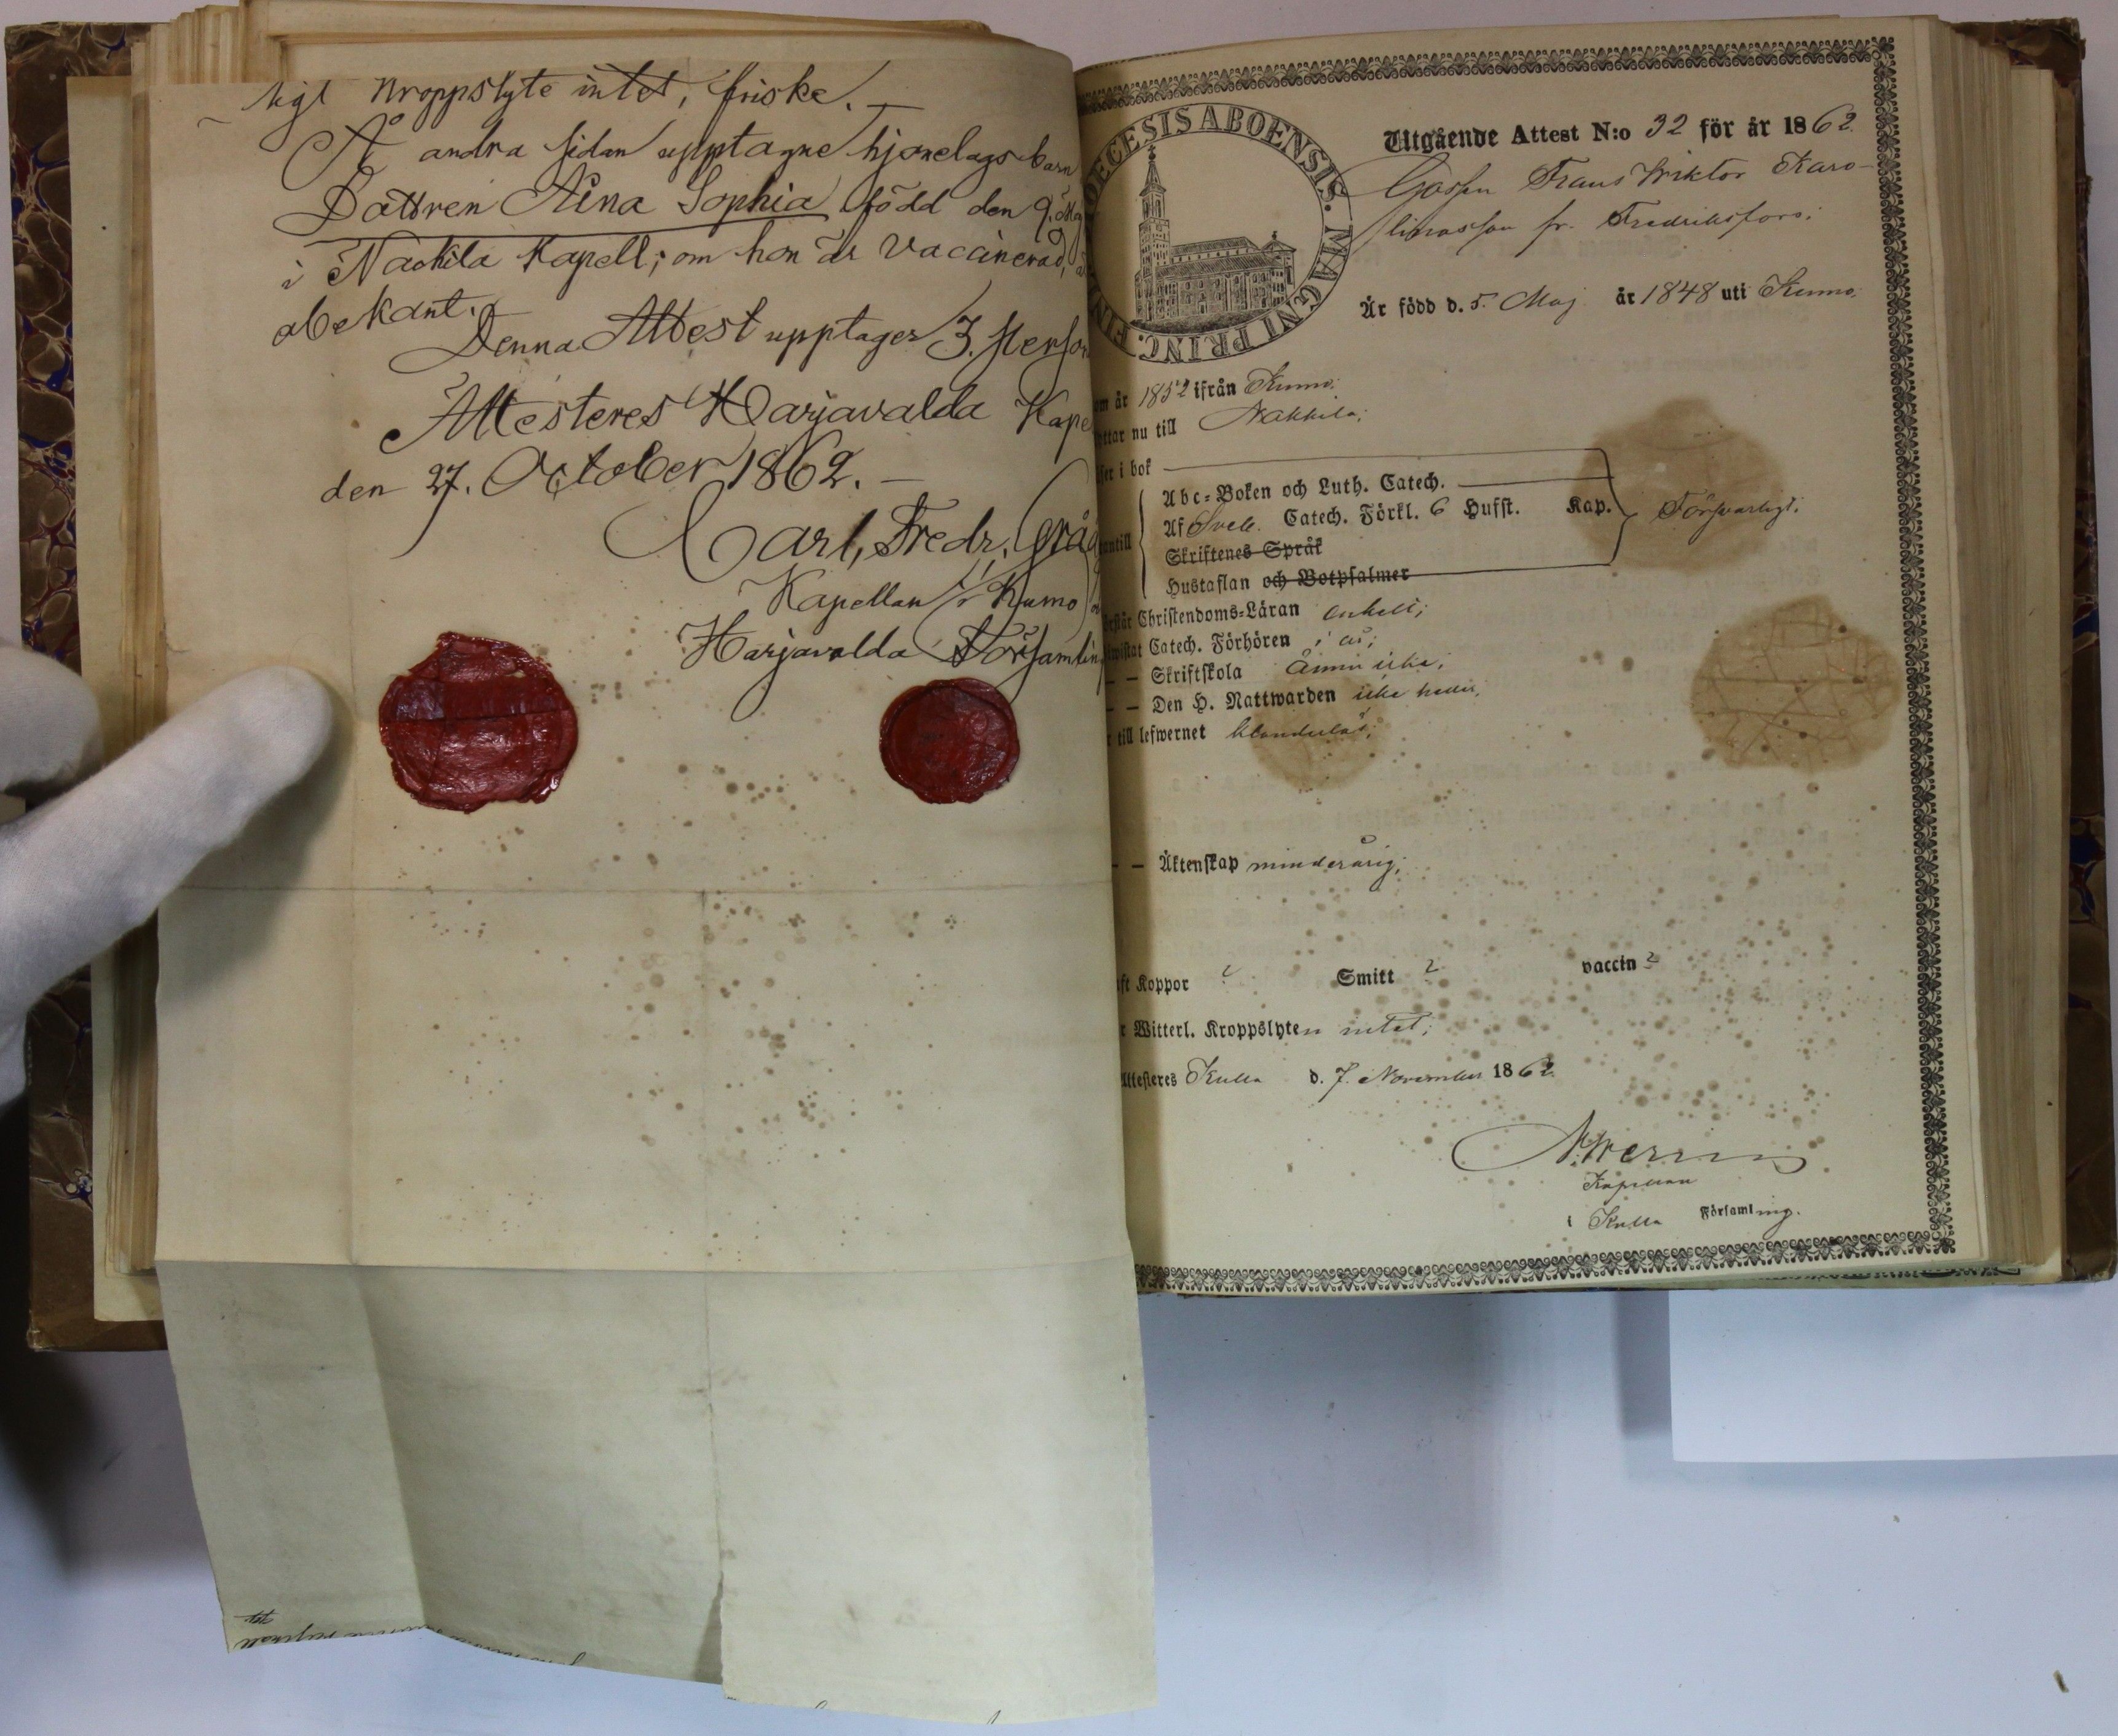 ligt Kroppslyte intet, friske. —
Å andra sidan upptagne hjonelags barn
Dottren Aina Sophia född den 9.
i Nackila Kapell; om hon är vaccinerad,
obekant.
Denna Attest upptager 3. Person
Attesteres Harjavalda Kape
den 27. October 1862. —
Carl, Fredr, Grå
Kapellan i Kumo
Harjavalda Församlin
DIOECESIS ABOENSIS. MAGNI PRINC. FIN
Utgående Attest N:o 32 för år 1862.
Gossen Frans Wiktor Karo-
linasson fr. Fredriksfors;
Är född d. 5. Maj år 1848 uti Kumo;
om år 1852 ifrån Kumo;
ttar nu till Nakkila;
ser i bok
Abc-Boken och Luth. Catech.
Af Sveb. Catech. Förkl. 6 Hufst. Kap. Försvarligt;
antill
Skriftenes Språk
Hustaflan och Botpsalmer
rstår Christendoms-Läran enkelt;
wistat Catech. Förhören i år;
— — Skriftskola ännu icke;
— — Den H. Nattwarden icke heller,
r till lefwernet klanderlös;
— — Äktenskap minderårig;
ft Koppor ? Smitt ? vaccin ?
r Witterl. Kroppslyten intet;
Attesteres Kulla d. 7. November 1862.
Kapellan
i Kulla Församling.